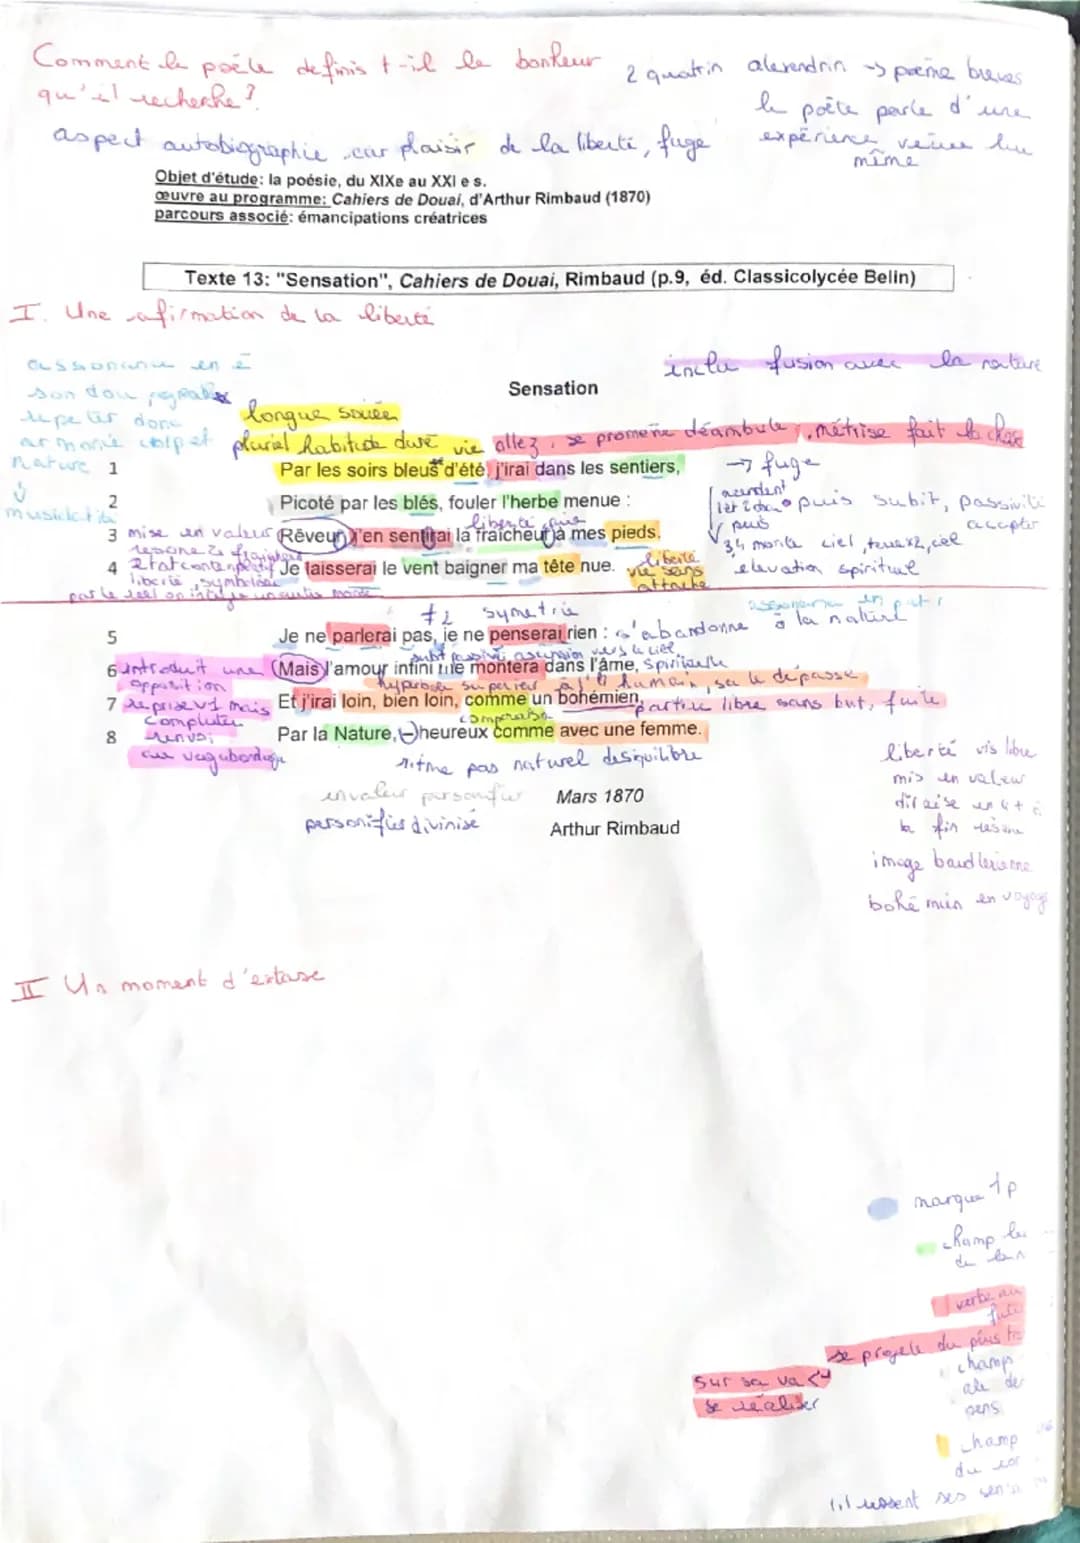 Comment le poète definis t-il le bonheur
qu'il recherche?
2 quatrin alexendrin → poème breves
le poète parle d'une
expérience vécue lui
même
aspect autobiographie car plaisir de la liberté, fuge
Objet d'étude: la poésie, du XIXe au XXI e s.
œuvre au programme: Cahiers de Douai, d'Arthur Rimbaud (1870)
parcours associé: émancipations créatrices
Texte 13: "Sensation", Cahiers de Douai, Rimbaud (p.9, éd. Classicolycée Belin)
I. Une afirmation de la liberté
assonance en é
son doux
repeter donc
armonie corp et
nature
musicalité
inclu fusion avec la nature
Sensation
longue soirée
pluriel habitude dure vie
allez, se promene déambule, métrise fait le choix
→ fuge
1 Par les soirs bleus d'été, j'irai dans les sentiers,
2 Picoté par les blés, fouler l'herbe menue :
puis subit, passivité
accepter
liberté
3 mise en valeur Rêveur, j'en sentirai la fraîcheur à mes pieds.
puis
3,4 monte ciel, terre x2, ciel
elevation spirituel
4 Je laisserai le vent baigner ma tête nue.
liberté
vie sans
attache
liberté, symbolise
≠2 symetrie
5 Je ne parlerai pas, je ne penserai rien :
s'abandonne à la nature
subit passive ascension vers le ciel
6 introduit une opposition Mais l'amour infini me montera dans l'âme, spirituelle
hyperbole superieur à l'humain, sa le dépasse
7 reprise v1 mais Et j'irai loin, bien loin, comme un bohémien,
partir libre sans but, fuite
completer
comparaison
8 Par la Nature, - heureux comme avec une femme.
au vagabondage
ritme pas naturel desiquilibre
en valeur personifier
personifier divinisé
Mars 1870
Arthur Rimbaud
liberté vis libre
mis en valeur
la fin
image baudlerienne
bohémien en voyage
II Un moment d'extase
marque 1p
champ
verbe au
se projete du
sur sa va
se réaliser
champ
sens
champ
du